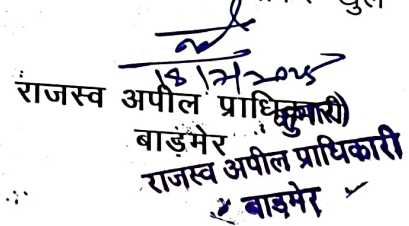 18/7/2025
राजस्व अपील प्राधिकारी)
बाड़मेर
राजस्व अपील प्राधिकारी
बाड़मेर